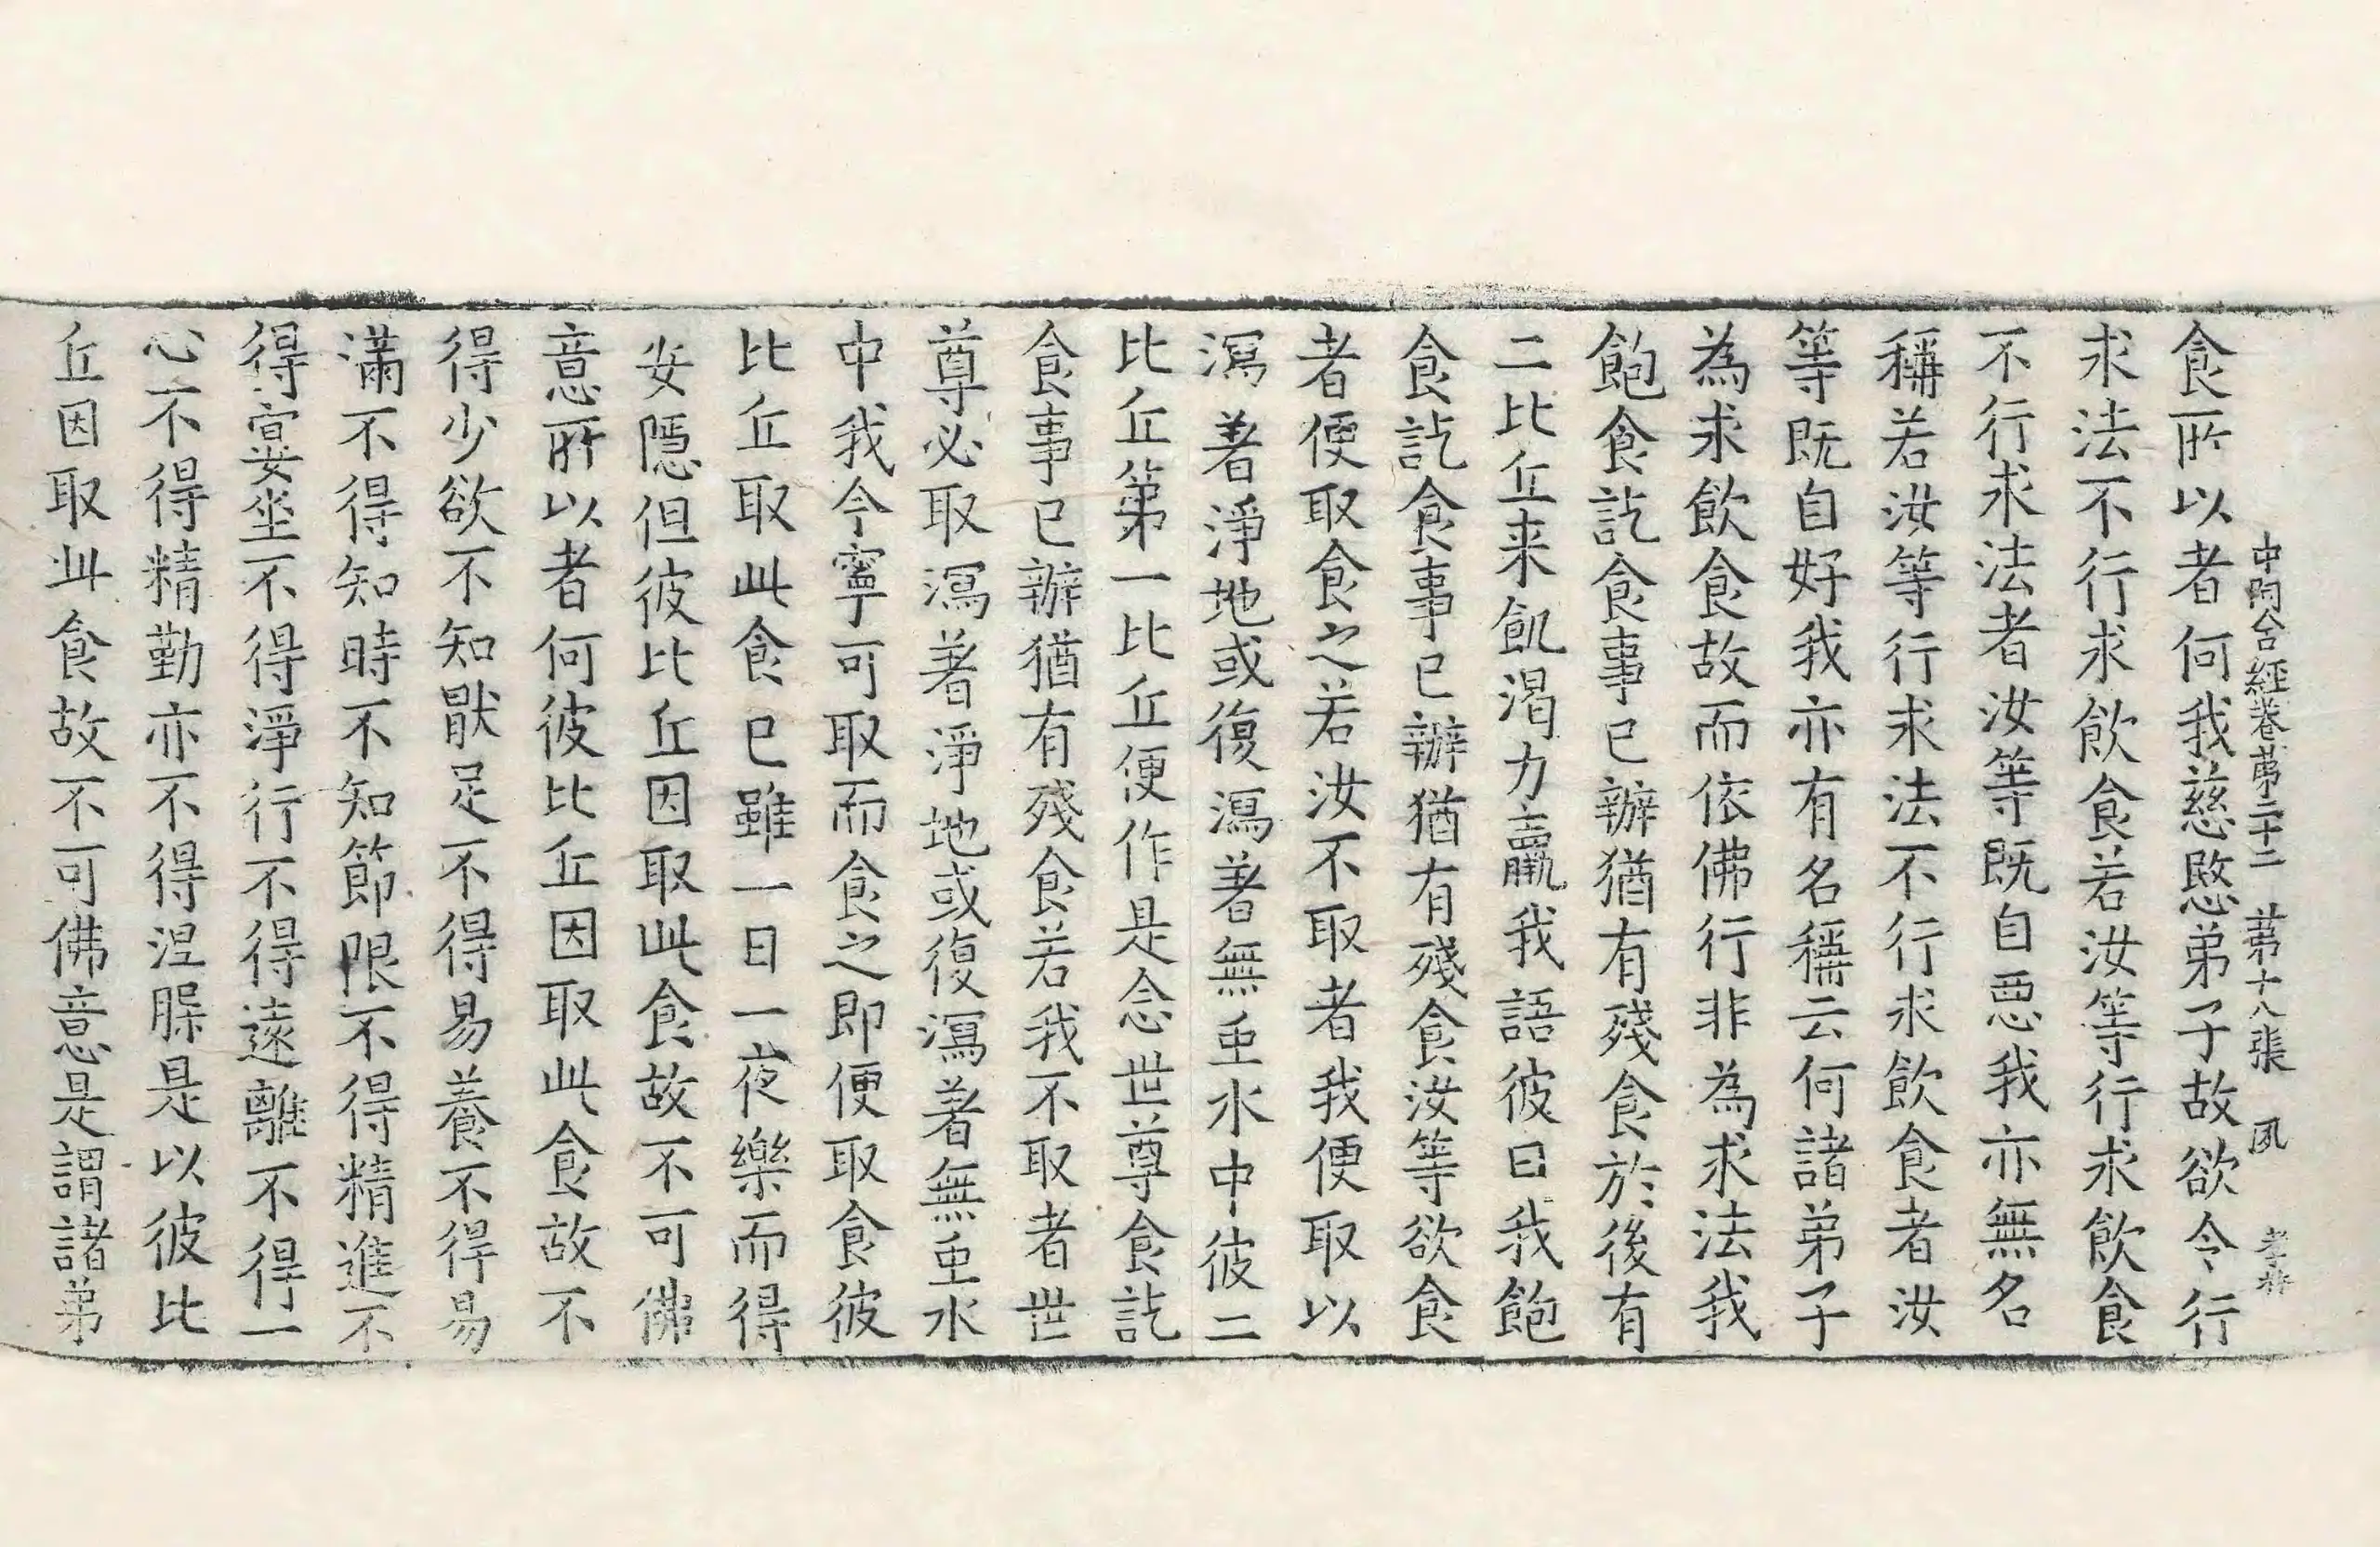 中阿含經卷第二十二 第十八張 夙 孝
食所以者何我慈愍弟子故欲令行
求法不行求飲食若汝等行求飲食
不行求法者汝等既自惡我亦無名
稱若汝等行求法不行求飲食者汝
等既自好我亦有名稱云何諸弟子
為求飲食故而依佛行非為求法我
飽食訖食事已辦猶有殘食於後有
二比丘来飢渴力羸我語彼曰我飽
食訖食事已辦猶有殘食汝等欲食
者便取食之若汝不取者我便取以
瀉著淨地或復瀉著無虫水中彼二
比丘第一比丘便作是念世尊食訖
食事已辦猶有殘食若我不取者世
尊必取瀉著淨地或復瀉著無虫水
中我今寧可取而食之即便取食彼
比丘取此食已雖一日一夜樂而得
安隱但彼比丘因取此食故不可佛
意所以者何彼比丘因取此食故不
得少欲不知猒足不得易養不得易
滿不得知時不知節限不得精進不
得宴坐不得淨行不得遠離不得一
心不得精勤亦不得涅槃是以彼比
丘因取此食故不可佛意是謂諸弟